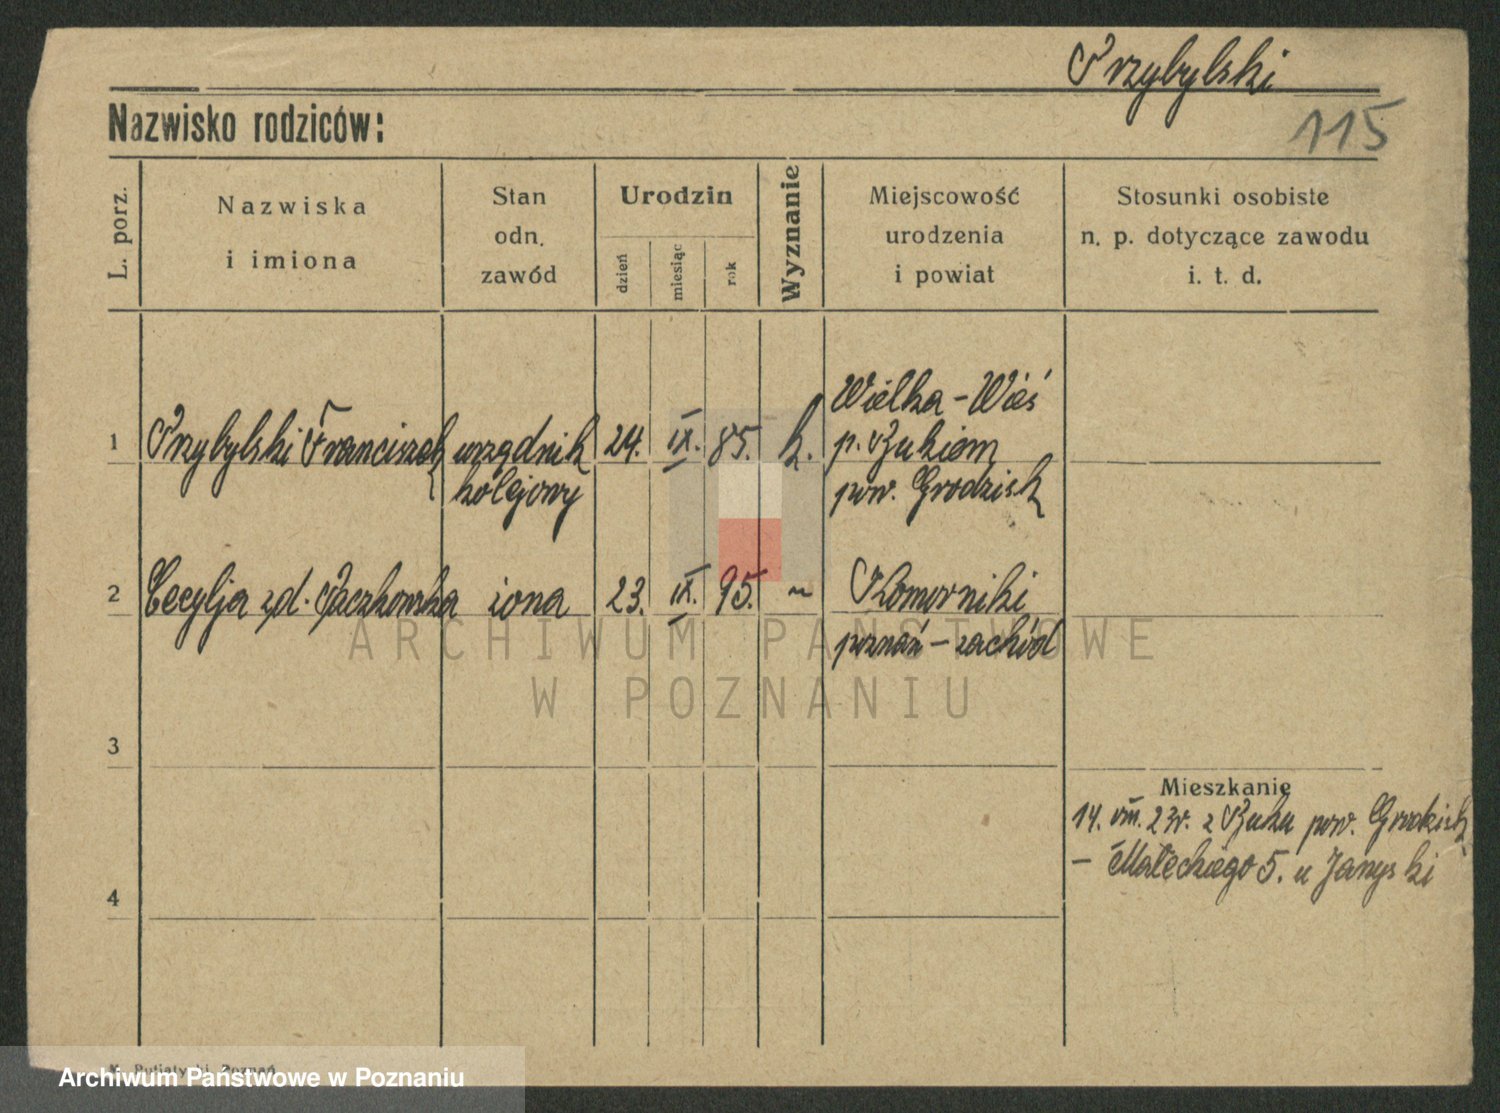 Przybylski
Nazwisko rodziców:
115
L. porz.
Nazwiska
i imiona
Stan
odn.
zawód
Urodzin
dzień
miesiąc
rok
Wyznanie
Miejscowość
urodzenia
i powiat
Stosunki osobiste
n. p. dotyczące zawodu
i. t. d.
1
Przybylski Franciszek
urzędnik
kolejowy
24.
IX.
85.
k.
Wielka-Wieś
p. Bukiem
pow. Grodzisk
2
Cecylja zd. Paczkowska
żona
23.
IX.
95.
~
Komorniki
poznań-zachód
ARCHIWUM PAŃSTWOWE
W POZNANIU
3
Mieszkanie
14. VIII. 23r. z Buku pow. Grodzisk
- Małeckiego 5. u Janyski
4
Poznań
Archiwum Państwowe w Poznaniu